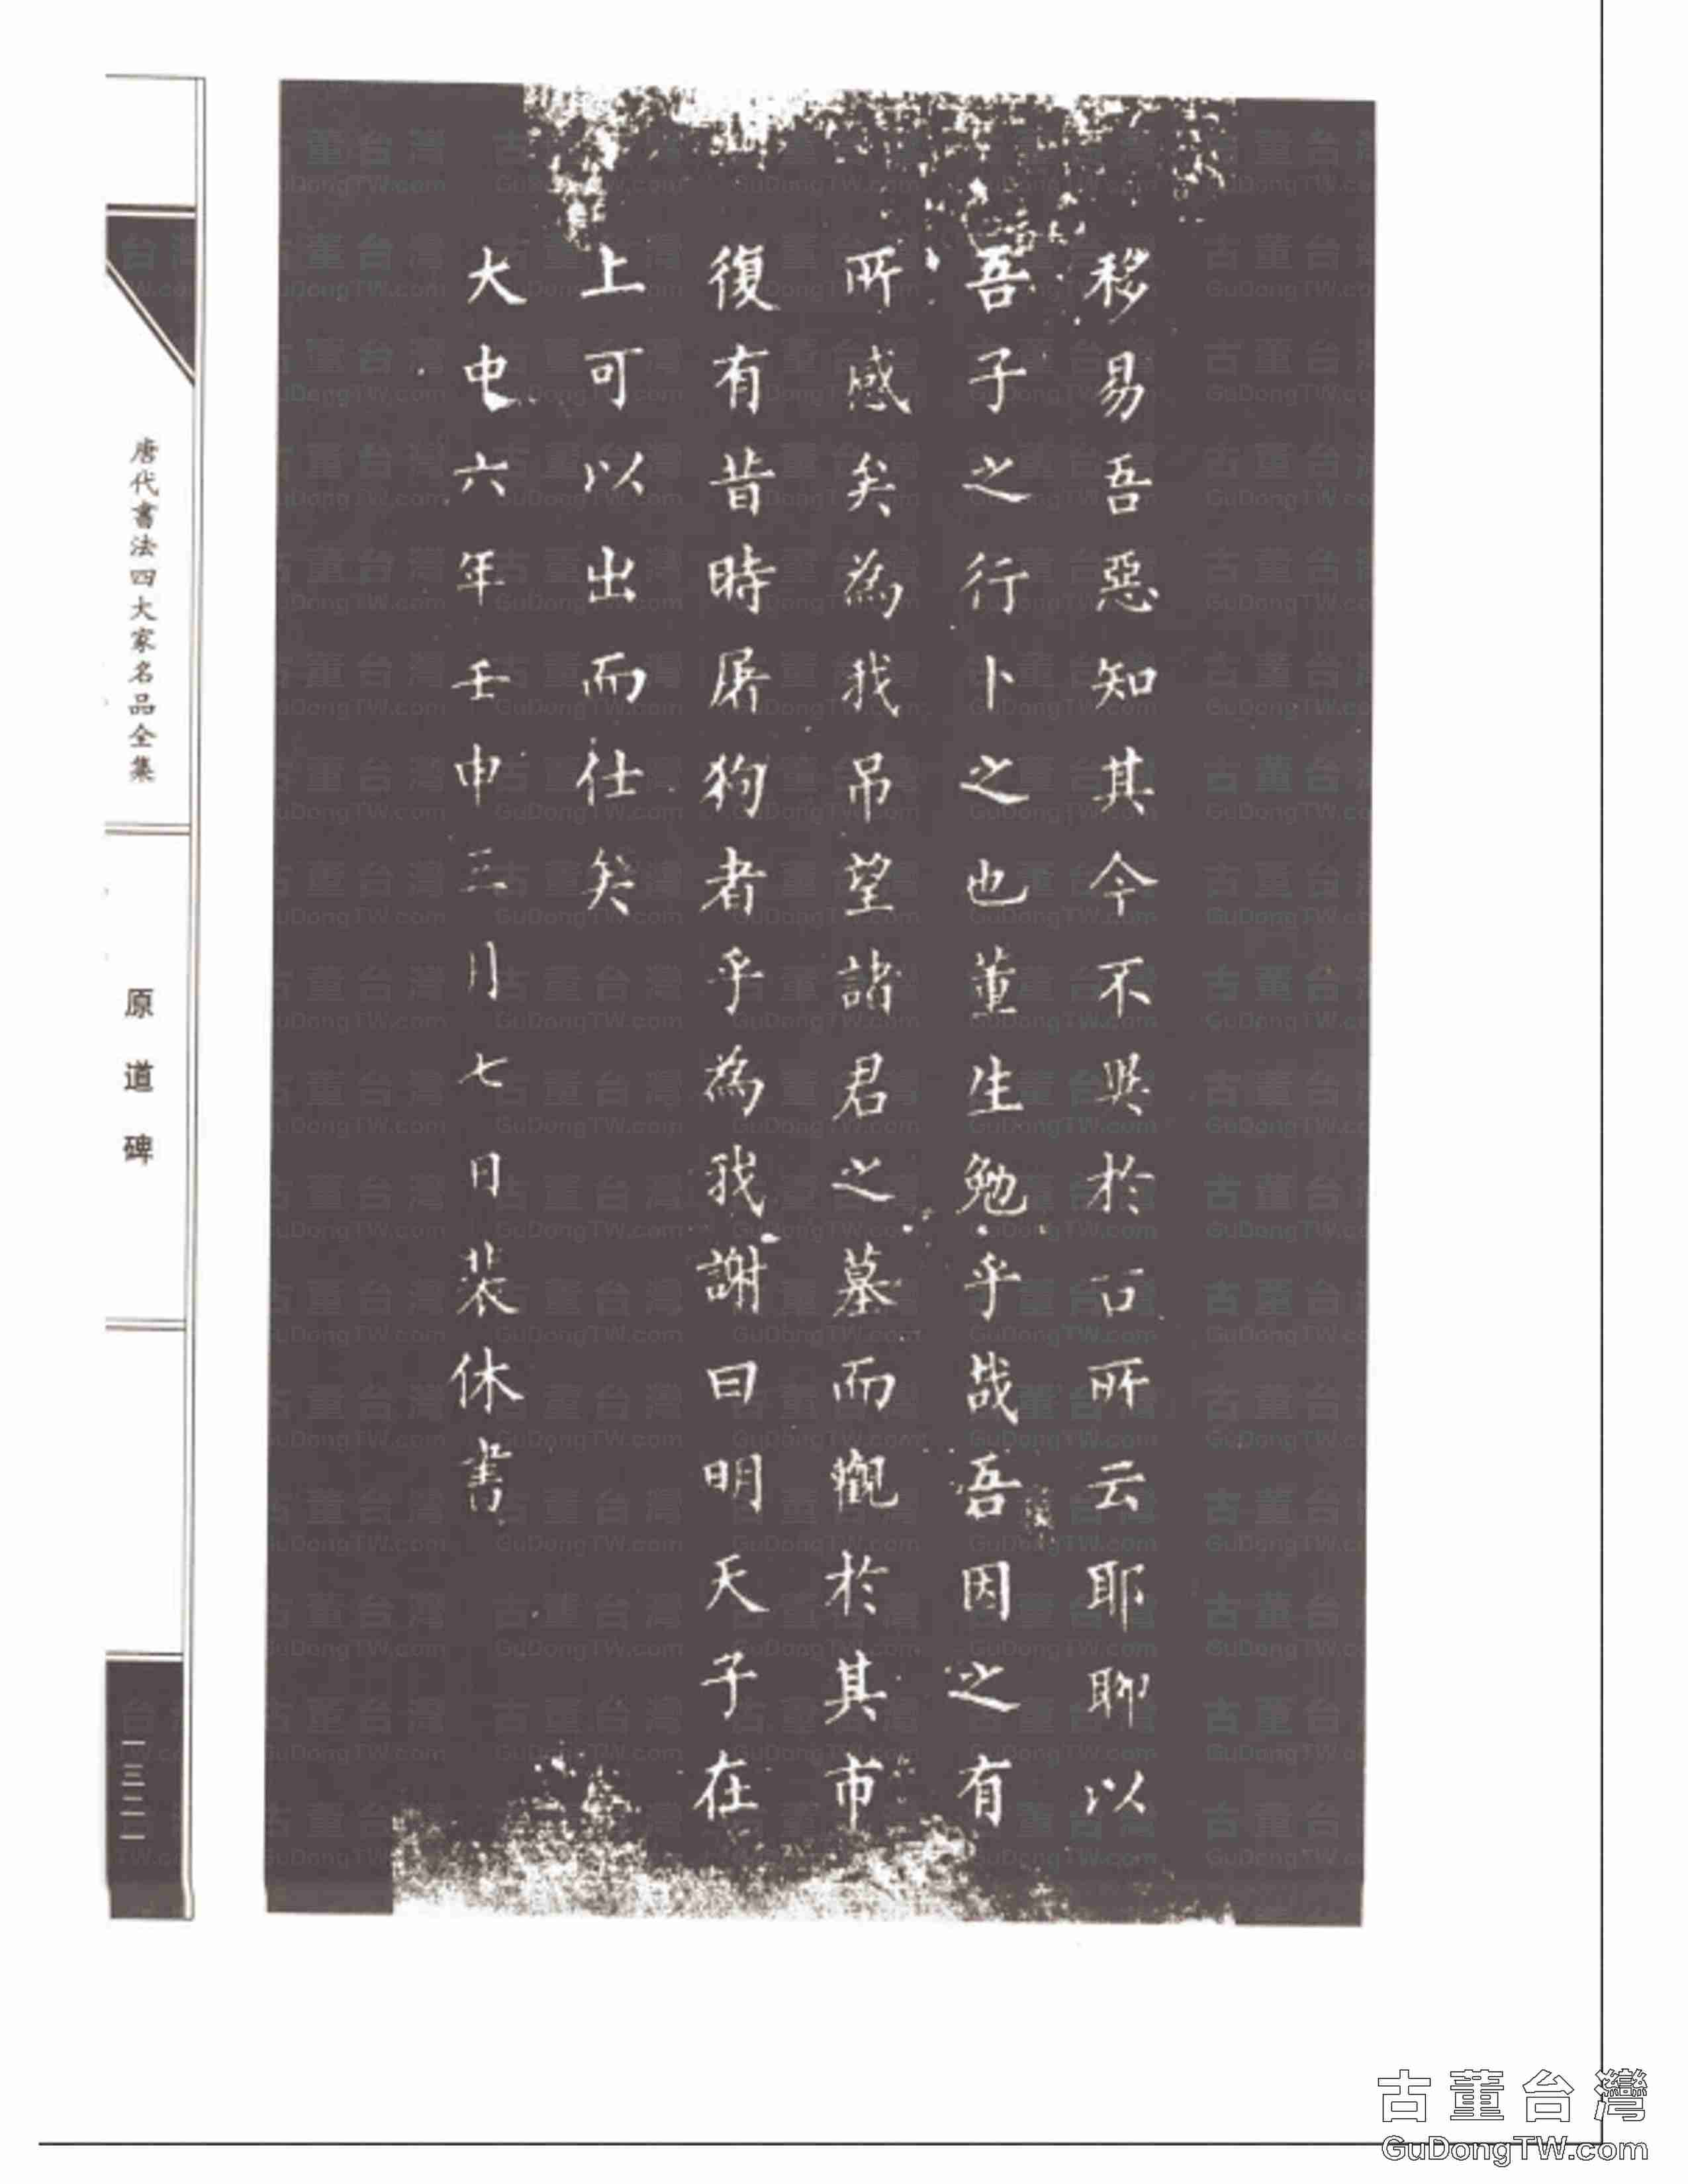 移易吾惡知其今不異於古所云耶聊以
吾子之行卜之也董生勉乎哉吾因之有
所感矣為我吊望諸君之墓而觀於其市
復有昔時屠狗者乎為我謝曰明天子在
上可以出而仕矣
大中六年壬申三月七日裴休書
唐代書法四大家名品全集
原道碑
一三二一
古董台灣
GuDongTW.com